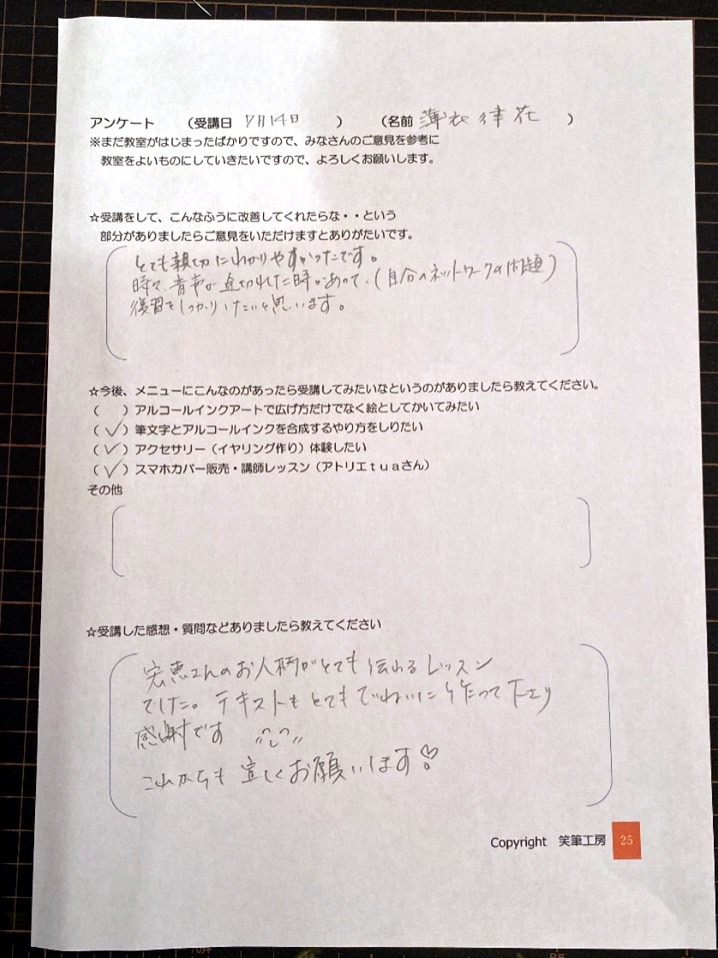 アンケート （受講日 7月14日 ） （名前 薄衣 律花 ）
※まだ教室がはじまったばかりですので、みなさんのご意見を参考に
教室をよいものにしていきたいですので、よろしくお願いします。
☆受講をして、こんなふうに改善してくれたらな・・という
部分がありましたらご意見をいただけますとありがたいです。
とても親切にわかりやすかったです。
時々、音声が途切れた時があって、(自分のネットワークの問題)
復習をしっかりしたいと思います。
☆今後、メニューにこんなのがあったら受講してみたいなというのがありましたら教えてください。
（ ）アルコールインクアートで広げ方だけでなく絵としてかいてみたい
（✓）筆文字とアルコールインクを合成するやり方をしりたい
（✓）アクセサリー（イヤリング作り）体験したい
（✓）スマホカバー販売・講師レッスン（アトリエｔｕａさん）
その他
☆受講した感想・質問などありましたら教えてください
宏恵さんのお人柄がとても伝わるレッスン
でした。テキストもとてもていねいに作って下さり
感謝です
これからも宜しくお願いします♡
Copyright 笑筆工房 25